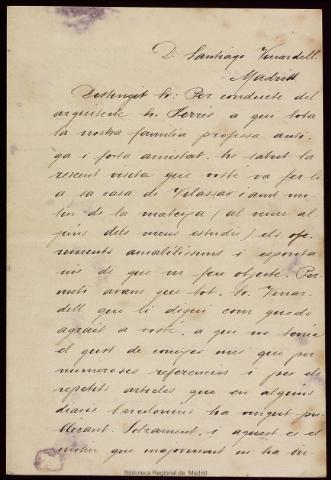 D. Santiago Vinardell.
Madrid
Distingit Sr: Per conducte del
arquitecte Sr. Ferrés a que tota
la nostra familia professa anti-
ga i forta amistat. he sabut la
rescent visita que vosté va fer-li
a sa casa de Vilassar i amb mo-
tiu de la mateixa (al meu al-
píns dels meus estudis) els ofe-
riments amabilissims i esponta-
nis de que m feu objecte. Per-
meti avans que tot, Sr. Vinar-
dell que li digui com quedo
agrait a vosté, a que no tenia
el gust de coneixer mes que per
numeroses referencies i per els
repetits articles que en alguns
diaris barcelonins ha vingut pu-
blicant. Solzament, i aquest es el
motiu que majorment m ha in-
Biblioteca Regional de Madrid